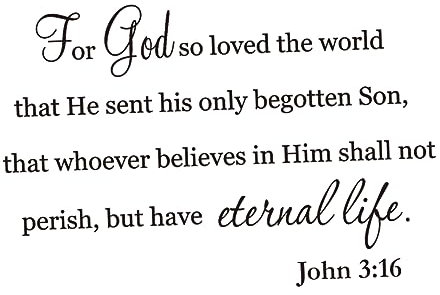 For God so loved the world
that He sent his only begotten Son,
that whoever believes in Him shall not
perish, but have eternal life.
John 3:16